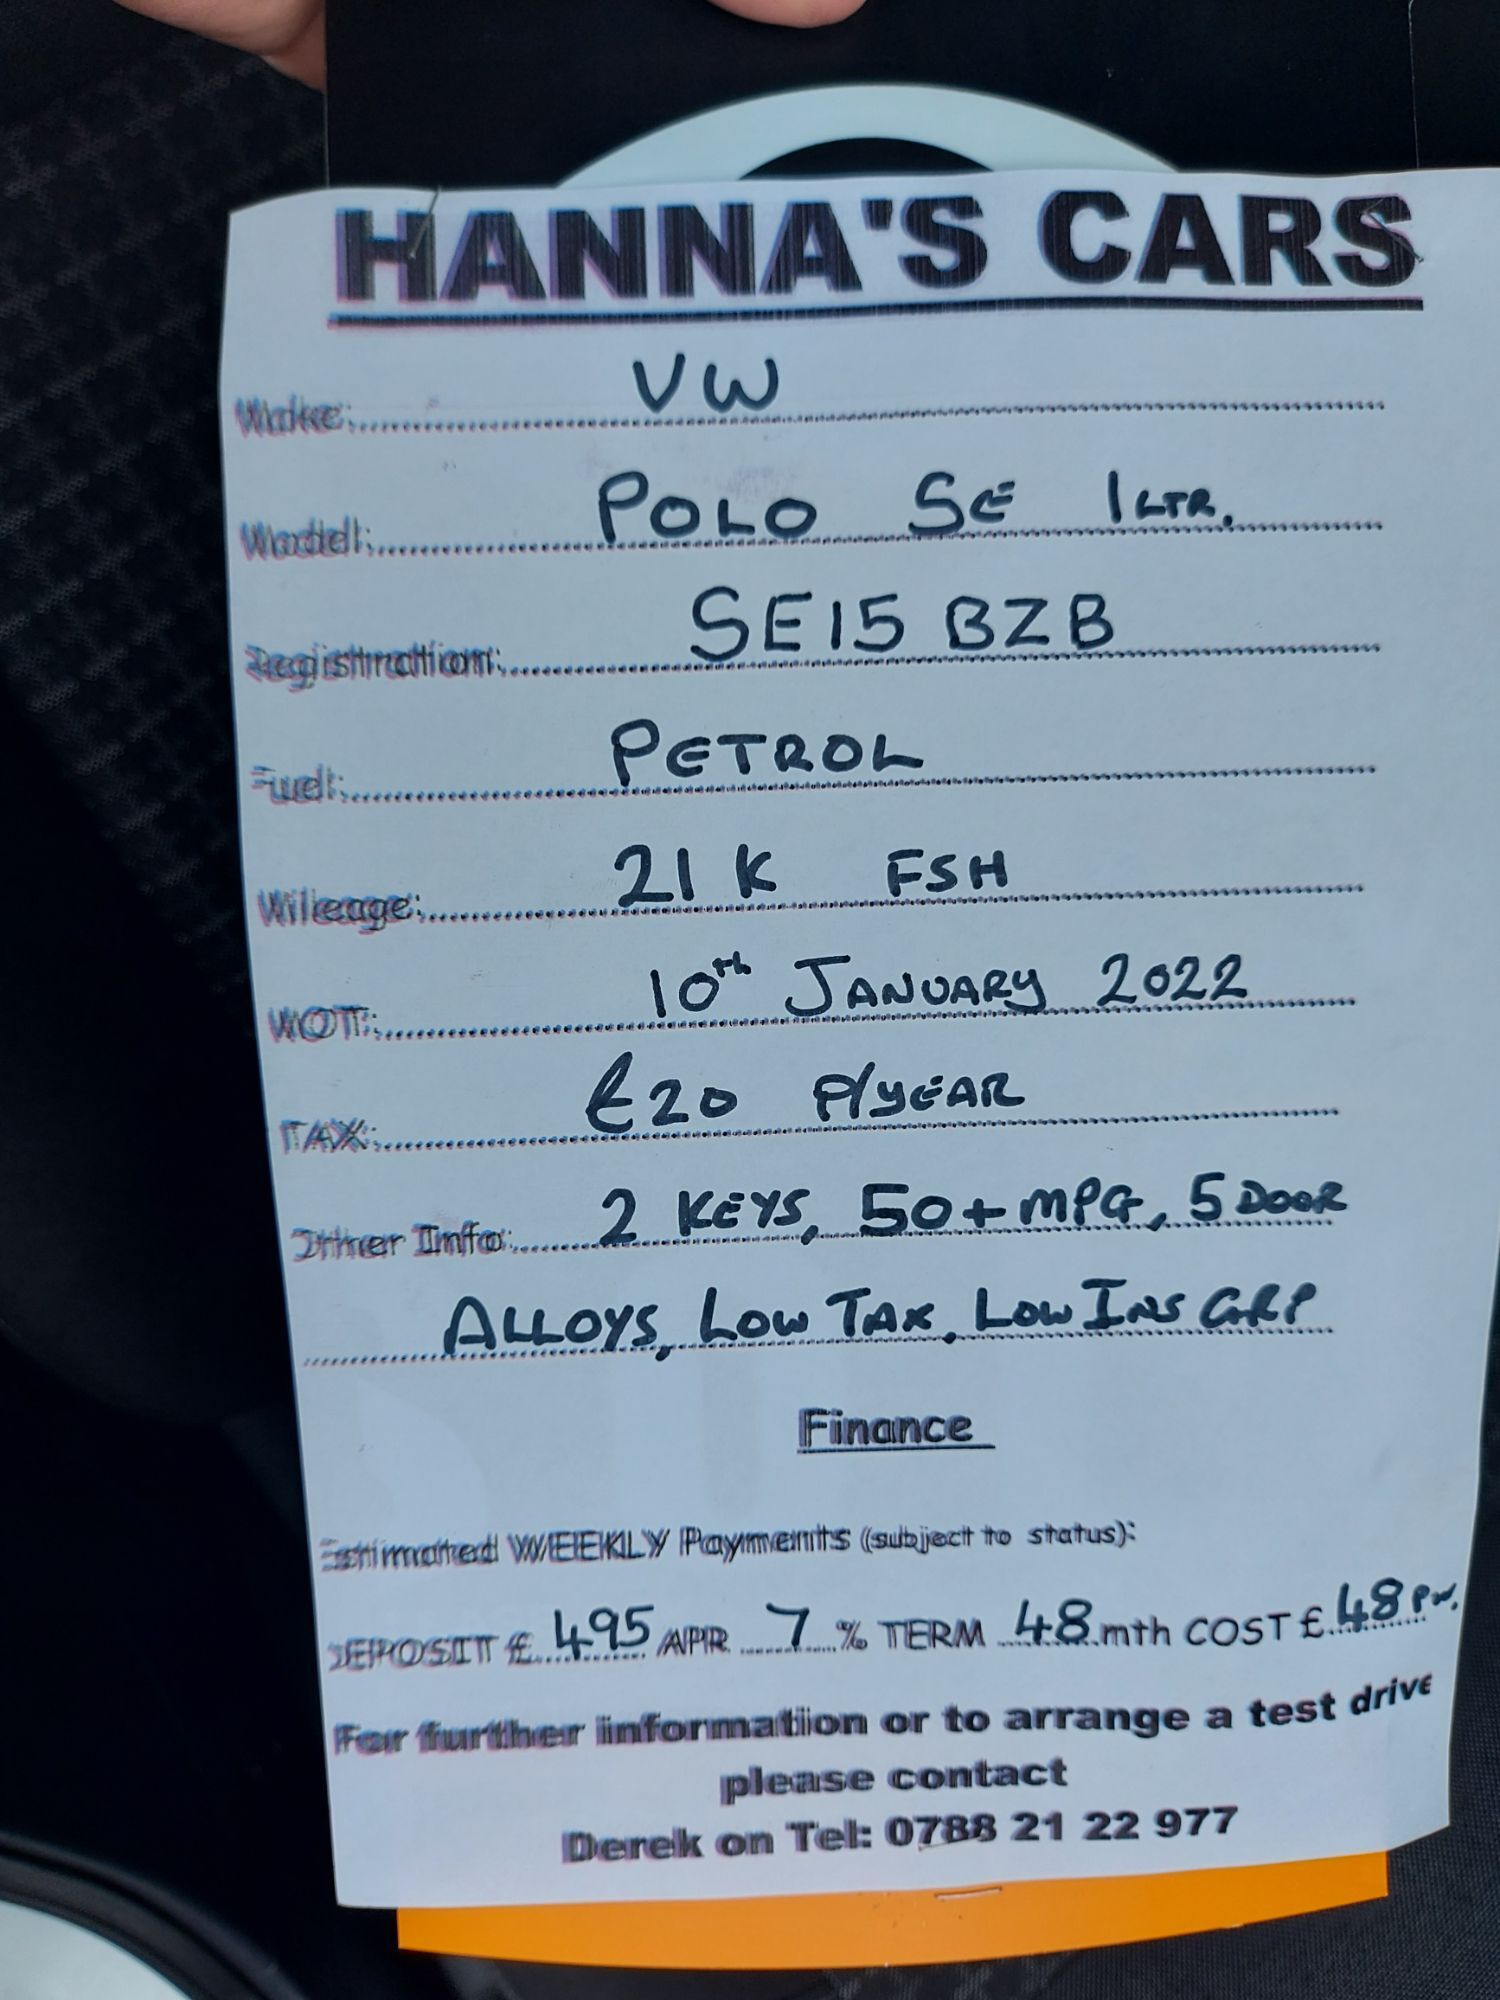 HANNA'S CARS
Make: VW
Model: POLO SE 1 LTR.
Registration: SE15 BZB
Fuel: PETROL
Mileage: 21 K FSH
MOT: 10th JANUARY 2022
TAX: £20 P/YEAR
Other Info: 2 KEYS, 50+MPG, 5 DOOR
ALLOYS, LOW TAX, LOW INS GRP
Finance
Estimated WEEKLY Payments (subject to status):
DEPOSIT £ 495 APR 7 % TERM 48 mth COST £ 48 PW.
For further information or to arrange a test drive
please contact
Derek on Tel: 0788 21 22 977